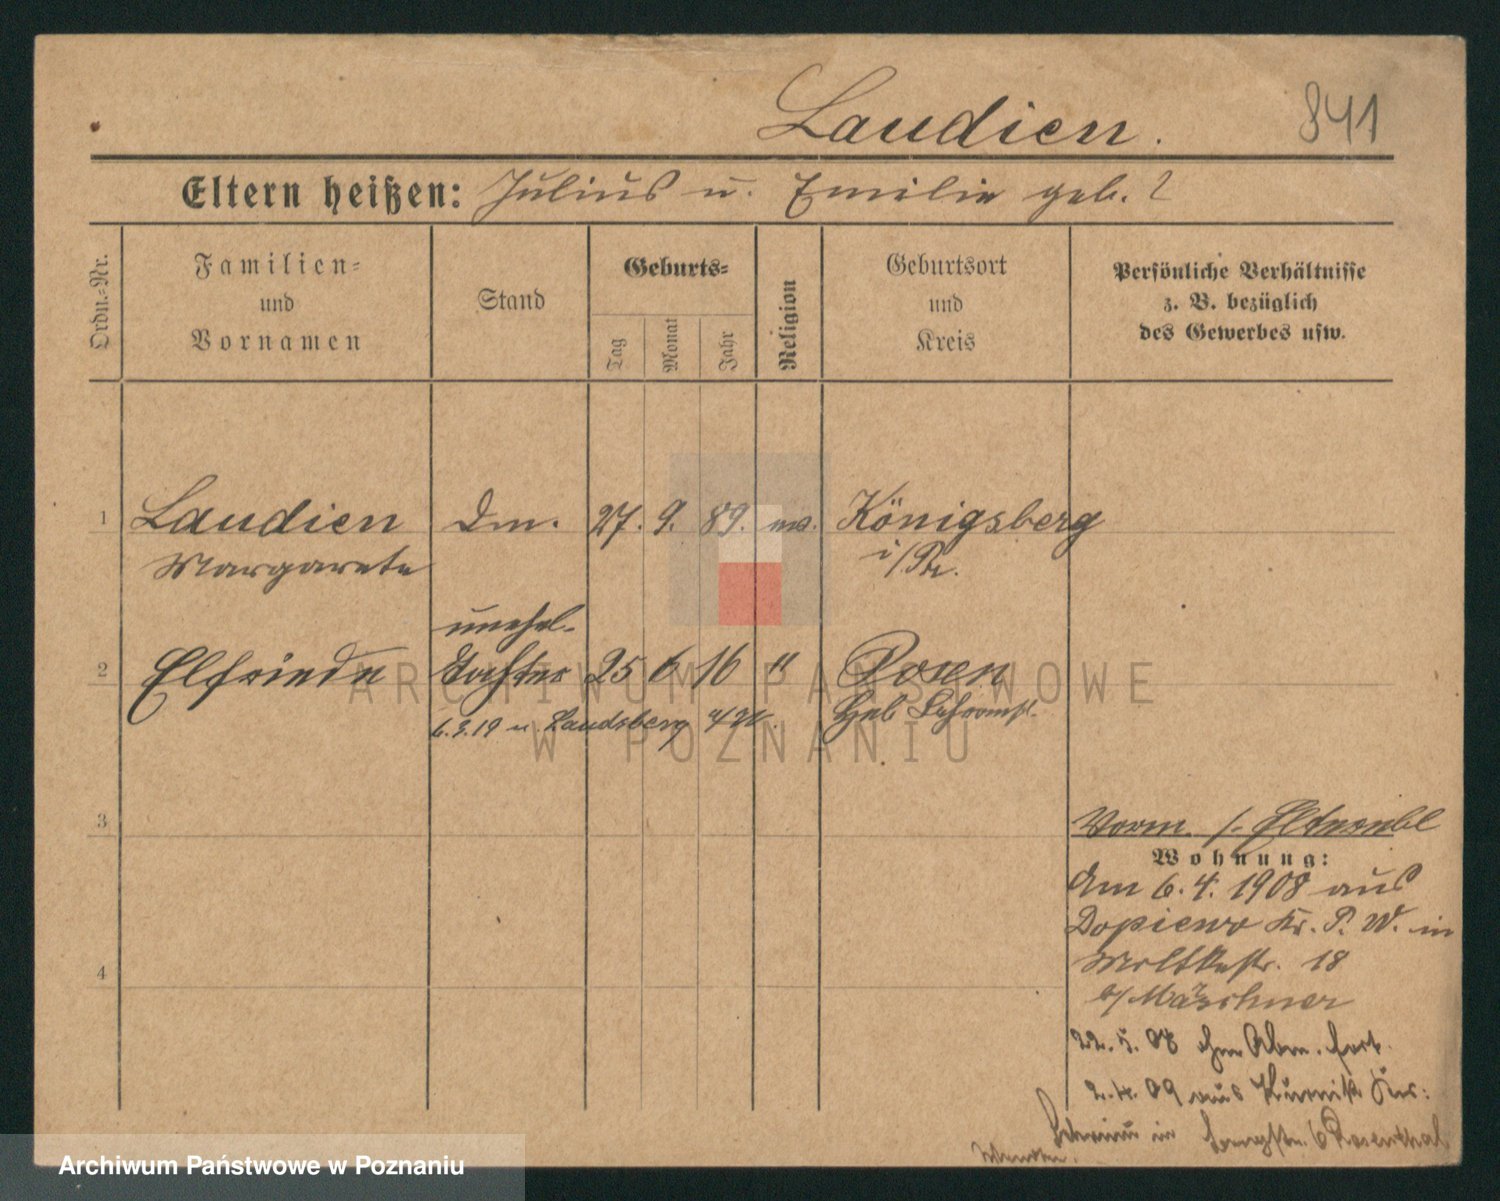 Laudien.
841
Eltern heißen: Julius u. Emilie geb. ?
Ordn.-Nr.
Familien-
und
Vornamen
Stand
Geburts-
Tag
Monat
Jahr
Religion
Geburtsort
und
Kreis
Persönliche Verhältnisse
z. B. bezüglich
des Gewerbes usw.
1 Laudien Dm. 27. 9. 89. Königsberg
Margarete i/Pr.
unehel.
2 Elfriede Tochter 25 6 16 " Posen
6.3.19 n. Landsberg Geb
3
Vorm.
Wohnung:
Am 6.4.1908 aus
Dopiewo Kr. P. W. in
Moltkestr. 18
4
b/ Märschner
22.5.08 ohne Abm. fort.
2.4.09 aus Kurnik Krs:
Schrimm in 6 Rosenthal
ARCHIWUM PAŃSTWOWE
W POZNANIU
Archiwum Państwowe w Poznaniu